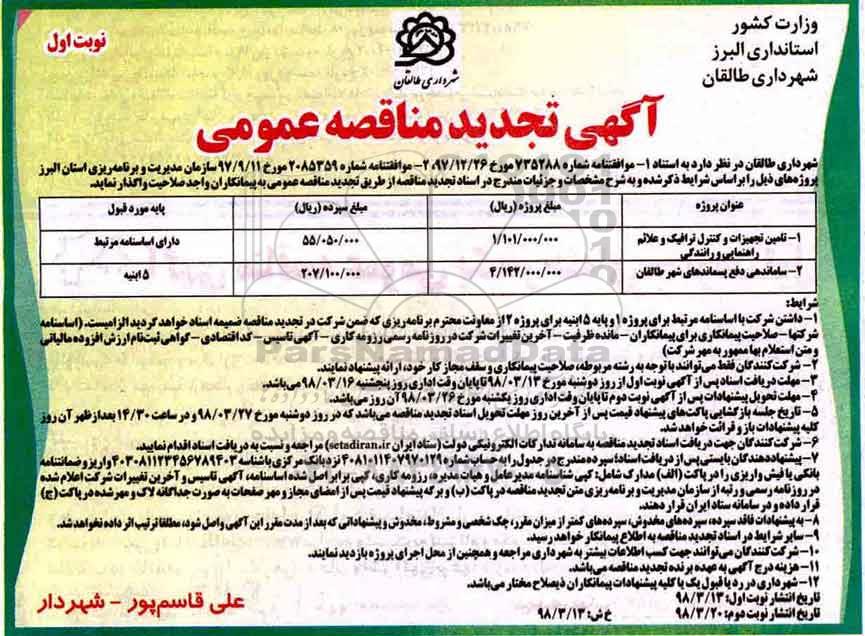 وزارت کشور
استانداری البرز
شهرداری طالقان
شهرداری طالقان
نوبت اول
آگهی تجدید مناقصه عمومی
شهرداری طالقان در نظر دارد به استناد ۱- موافقتنامه شماره ۷۳۵۲۸۸ مورخ ۹۷/۱۲/۲۶، ۲- موافقتنامه شماره ۲۰۸۵۳۵۹ مورخ ۹۷/۹/۱۱ سازمان مدیریت و برنامه‌ریزی استان البرز
پروژه‌های ذیل را بر اساس شرایط ذکر شده و به شرح مشخصات و جزئیات مندرج در اسناد تجدید مناقصه از طریق تجدید مناقصه عمومی به پیمانکاران واجد صلاحیت واگذار نماید.
عنوان پروژه مبلغ پروژه (ریال) مبلغ سپرده (ریال) پایه مورد قبول
۱- تامین تجهیزات و کنترل ترافیک و علائم راهنمایی و رانندگی ۱/۱۰۱/۰۰۰/۰۰۰ ۵۵/۰۵۰/۰۰۰ دارای اساسنامه مرتبط
۲- ساماندهی دفع پسماندهای شهر طالقان ۴/۱۴۲/۰۰۰/۰۰۰ ۲۰۷/۱۰۰/۰۰۰ ۵ ابنیه
شرایط:
۱- داشتن شرکت با اساسنامه مرتبط برای پروژه ۱ و پایه ۵ ابنیه برای پروژه ۲ از معاونت محترم برنامه‌ریزی که ضمن شرکت در تجدید مناقصه ضمیمه اسناد خواهد گردید الزامیست. (اساسنامه
شرکتها – صلاحیت پیمانکاری برای پیمانکاران – مانده ظرفیت – آخرین تغییرات شرکت در روزنامه رسمی رزومه کاری – آگهی تاسیس – کد اقتصادی – گواهی ثبت‌نام ارزش افزوده مالیاتی
و متن استعلام بها ممهور به مهر شرکت)
۲- شرکت‌کنندگان فقط می‌توانند با توجه به رشته مربوطه، صلاحیت پیمانکاری و سقف مجاز کار خود، ارائه پیشنهاد نمایند.
۳- مهلت دریافت اسناد پس از آگهی نوبت اول از روز دوشنبه مورخ ۹۸/۰۳/۱۳ تا پایان وقت اداری روز پنجشنبه ۹۸/۰۳/۱۶ می‌باشد.
۴- مهلت تحویل پیشنهادات پس از آگهی نوبت دوم تا پایان وقت اداری روز یکشنبه مورخ ۹۸/۰۳/۲۶ آن روز می‌باشد.
۵- تاریخ جلسه بازگشایی پاکت‌های پیشنهاد قیمت پس از آخرین روز مهلت تحویل اسناد تجدید مناقصه می‌باشد که در روز دوشنبه مورخ ۹۸/۰۳/۲۷ و در ساعت ۱۴/۳۰ بعدازظهر آن روز
کلیه پیشنهادات باز و قرائت خواهد شد.
۶- شرکت‌کنندگان جهت دریافت اسناد تجدید مناقصه به سامانه تدارکات الکترونیکی دولت (ستاد ایران setadiran.ir) مراجعه و نسبت به دریافت اسناد اقدام نمایید.
۷- پیشنهاددهندگان بایستی پس از دریافت اسناد؛ سپرده مندرج در جدول را به حساب شماره ۴۰۸۱۰۱۱۴۰۷۹۷۰۱۲۹ نزد بانک مرکزی با شناسه ۴۰۳۰۸۱۱۲۳۴۵۶۷۸۹۴۰۳ واریز و ضمانتنامه
بانکی یا فیش واریزی را در پاکت (الف) مدارک شامل: کپی شناسنامه مدیرعامل و هیات مدیره، رزومه کاری، کپی برابر اصل شده اساسنامه، آگهی تاسیس و آخرین تغییرات شرکت اعلام شده
در روزنامه رسمی و رتبه از سازمان مدیریت و برنامه‌ریزی متن تجدید مناقصه در پاکت (ب) و برگه پیشنهاد قیمت پس از امضای مجاز و مهر صفحات به صورت جداگانه لاک و مهر شده در پاکت (ج)
قرار داده و در سامانه ستاد ایران قرار دهند.
۸- به پیشنهادات فاقد سپرده، سپرده‌های مخدوش، سپرده‌های کمتر از میزان مقرر، چک شخصی و مشروط، مخدوش و پیشنهاداتی که بعد از مدت مقرر این آگهی واصل شود، مطلقا ترتیب اثر داده نخواهد شد.
۹- سایر شرایط در اسناد تجدید مناقصه به اطلاع پیمانکار خواهد رسید.
۱۰- شرکت‌کنندگان می‌توانند جهت کسب اطلاعات بیشتر به شهرداری مراجعه و همچنین از محل اجرای پروژه بازدید نمایند.
۱۱- هزینه درج آگهی به عهده برنده تجدید مناقصه می‌باشد.
۱۲- شهرداری در رد یا قبول یک یا کلیه پیشنهادات پیمانکاران ذیصلاح مختار می‌باشد.
تاریخ انتشار نوبت اول: ۹۸/۳/۱۳
تاریخ انتشار نوبت دوم: ۹۸/۳/۲۰ خ ش: ۹۸/۳/۱۳
علی قاسم‌پور – شهردار
ParsNamadData